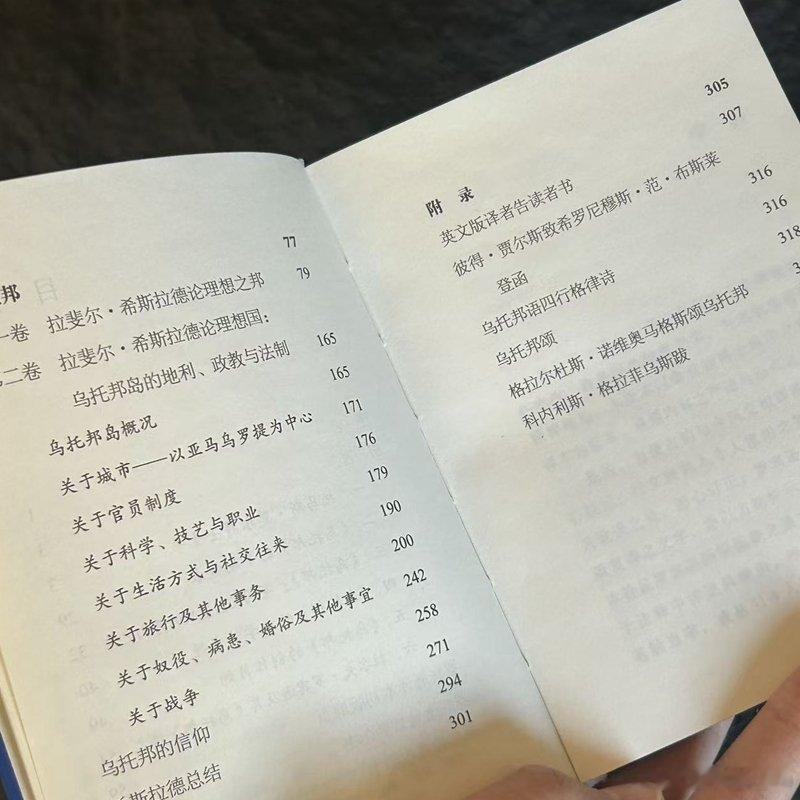 邦 77
一卷 拉斐尔·希斯拉德论理想之邦 79
二卷 拉斐尔·希斯拉德论理想国：
乌托邦岛的地利、政教与法制 165
乌托邦岛概况 165
关于城市——以亚马乌罗提为中心 171
关于官员制度 176
关于科学、技艺与职业 179
关于生活方式与社交往来 190
关于旅行及其他事务 200
关于奴役、病患、婚俗及其他事宜 242
关于战争 258
乌托邦的信仰 271
斯拉德总结 294
301
附 录 305
英文版译者告读者书 307
彼得·贾尔斯致希罗尼穆斯·范·布斯莱
登函 316
乌托邦语四行格律诗 316
乌托邦颂 318
格拉尔杜斯·诺维奥马格斯颂乌托邦 3
科内利斯·格拉菲乌斯跋